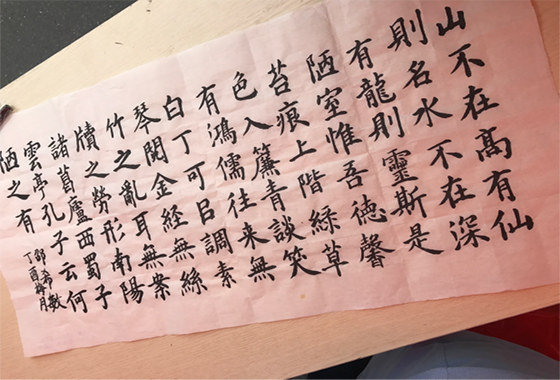 山不在高有仙
則名水不在深
有龍則靈斯是
陋室惟吾德馨
苔痕上階綠草
色入簾青談笑
有鴻儒往来無
白丁可㠯調素
琴閱金経無絲
竹之亂耳無案
牘之勞形南陽
諸葛廬西蜀子
雲亭孔子云何
陋之有
邵希敏
丁酉梅月